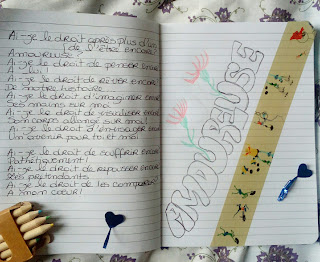 Ai-je le droit après plus d'1 an
de l'être encore!
Amoureuse!
Ai-je le droit de penser encore
à lui!
Ai-je le droit de rêver encore!
De notre histoire
Ai-je le droit d'imaginer encore
Ses mains sur moi!
Ai-je le droit de visualiser encore
Son corps allongé sur moi!
Ai-je le droit d'envisager encore
Un avenir pour toi et moi!
Ai-je le droit de souffrir encore
Pathétiquement!
Ai-je le droit de repousser encore
Les prétendants
Ai-je le droit de les comparer
A mon cœur!
AMOUREUSE